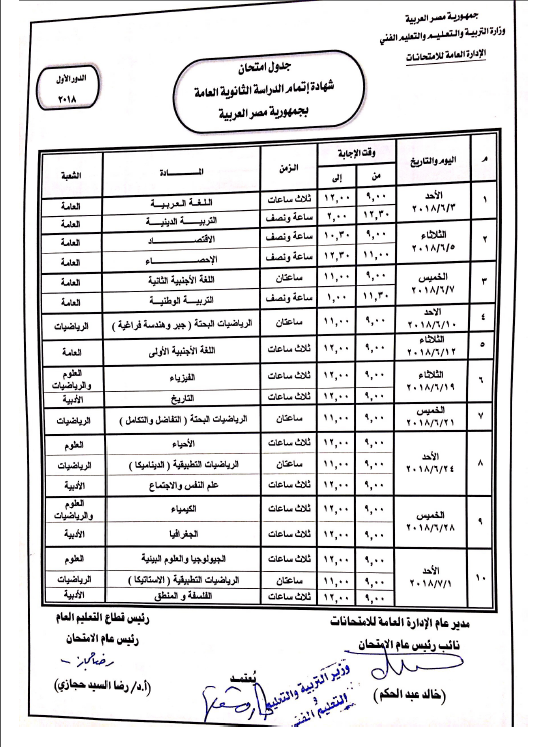 جمهورية مصر العربية
وزارة التربية والتعليم والتعليم الفني
الإدارة العامة للامتحانات
جدول امتحان
شهادة إتمام الدراسة الثانوية العامة
بجمهورية مصر العربية
الدور الأول
٢٠١٨
م اليوم والتاريخ وقت الإجابة الزمن المــــادة الشعبة
من إلى
١ الأحد ٢٠١٨/٦/٣ ٩,٠٠ ١٢,٠٠ ثلاث ساعات اللغة العربية العامة
١٢,٣٠ ٢,٠٠ ساعة ونصف التربية الدينية العامة
٢ الثلاثاء ٢٠١٨/٦/٥ ٩,٠٠ ١٠,٣٠ ساعة ونصف الاقتصاد العامة
١١,٠٠ ١٢,٣٠ ساعة ونصف الإحصاء العامة
٣ الخميس ٢٠١٨/٦/٧ ٩,٠٠ ١١,٠٠ ساعتان اللغة الأجنبية الثانية العامة
١١,٣٠ ١,٠٠ ساعة ونصف التربية الوطنية العامة
٤ الاحد ٢٠١٨/٦/١٠ ٩,٠٠ ١١,٠٠ ساعتان الرياضيات البحتة ( جبر وهندسة فراغية ) الرياضيات
٥ الثلاثاء ٢٠١٨/٦/١٢ ٩,٠٠ ١٢,٠٠ ثلاث ساعات اللغة الأجنبية الأولى العامة
٦ الثلاثاء ٢٠١٨/٦/١٩ ٩,٠٠ ١٢,٠٠ ثلاث ساعات الفيزياء العلوم والرياضيات
٩,٠٠ ١٢,٠٠ ثلاث ساعات التاريخ الأدبية
٧ الخميس ٢٠١٨/٦/٢١ ٩,٠٠ ١١,٠٠ ساعتان الرياضيات البحتة ( التفاضل والتكامل ) الرياضيات
٨ الأحد ٢٠١٨/٦/٢٤ ٩,٠٠ ١٢,٠٠ ثلاث ساعات الأحياء العلوم
٩,٠٠ ١١,٠٠ ساعتان الرياضيات التطبيقية ( الديناميكا ) الرياضيات
٩,٠٠ ١٢,٠٠ ثلاث ساعات علم النفس والاجتماع الأدبية
٩ الخميس ٢٠١٨/٦/٢٨ ٩,٠٠ ١٢,٠٠ ثلاث ساعات الكيمياء العلوم والرياضيات
٩,٠٠ ١٢,٠٠ ثلاث ساعات الجغرافيا الأدبية
١٠ الأحد ٢٠١٨/٧/١ ٩,٠٠ ١٢,٠٠ ثلاث ساعات الجيولوجيا والعلوم البيئية العلوم
٩,٠٠ ١١,٠٠ ساعتان الرياضيات التطبيقية ( الاستاتيكا ) الرياضيات
٩,٠٠ ١٢,٠٠ ثلاث ساعات الفلسفة و المنطق الأدبية
مدير عام الإدارة العامة للامتحانات
نائب رئيس عام الامتحان
(خالد عبد الحكم)
رئيس قطاع التعليم العام
رئيس عام الامتحان
رضا حجازى
(أ.د/ رضا السيد حجازي)
يُعتمد
وزير التربية والتعليم
و
التعليم الفني